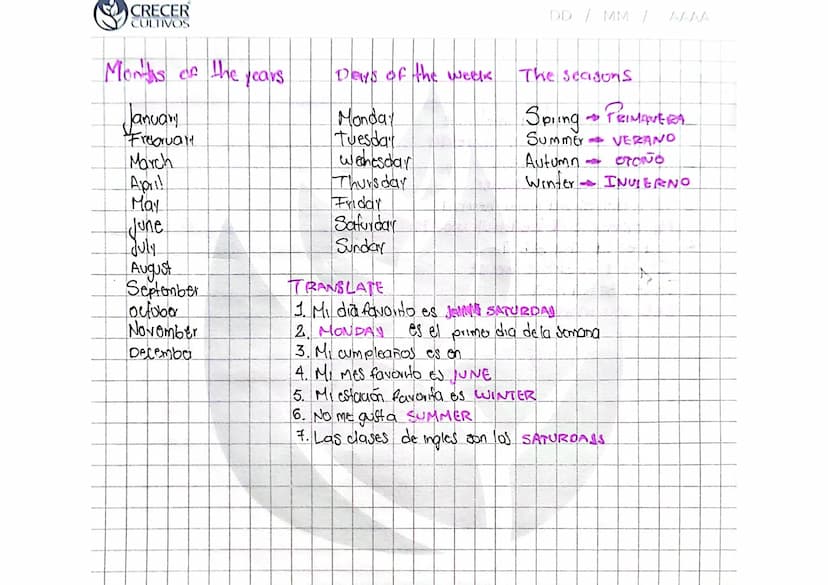 CRECER
CULTIVOS
DD / MM / AAAA
Months of the years
January
February
March
April
May
June
July
August
September
october
November
December
Days of the week
Monday
Tuesday
Wednesday
Thursday
Friday
Saturday
Sunday
The seasons
Spring → PRIMAVERA
Summer → VERANO
Autumn → OTOÑO
Winter → INVIERNO
TRANSLATE
1. Mi dia favorito es SATURDAY
2. MONDAY es el primer dia de la semana
3. Mi cumpleaños es en
4. Mi mes favorito es JUNE
5. Mi estación favorita es WINTER
6. No me gusta SUMMER
7. Las clases de ingles son los SATURDAYS